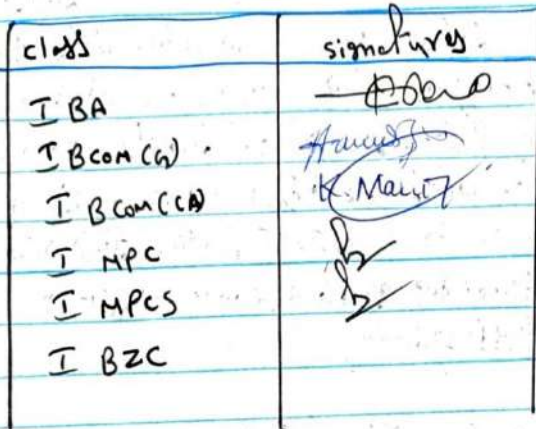 class signatures
I BA
I BCOM (G).
I BCOM (CA)
I MPC
I MPCS
I BZC